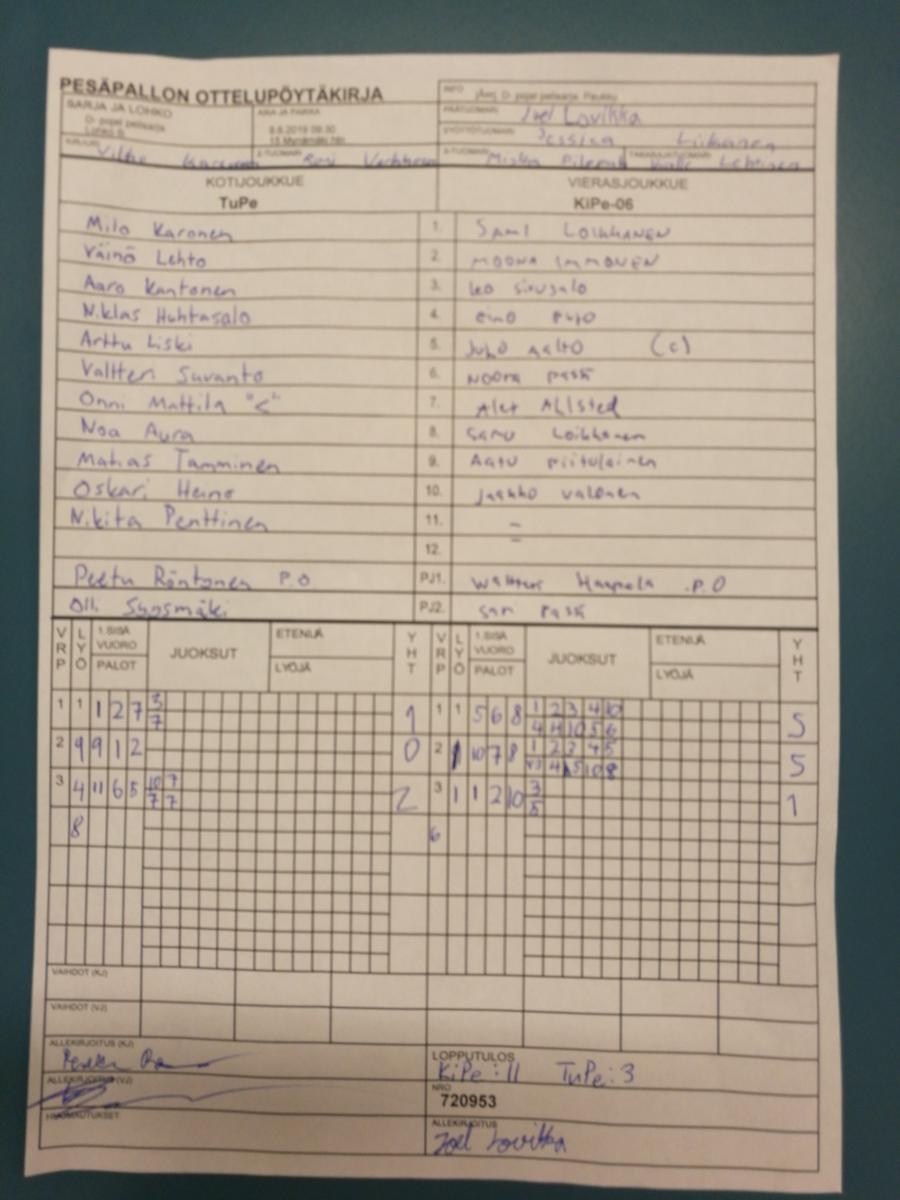 PESÄPALLON OTTELUPÖYTÄKIRJA
INFO D- pojat pelisarja Peukku
SARJA JA LOHKO
D- pojat pelisarja
Lohko B
AIKA JA PAIKKA
8.6.2019 09:30
15 Mynämäki htn
PÄÄTUOMARI Joel Lovikka
SYÖTTÖTUOMARI Jessica Liikanen
KIRJURI Ville
2-TUOMARI
3-TUOMARI
TAKARAJATUOMARI Lehtinen
KOTIJOUKKUE VIERASJOUKKUE
TuPe KiPe-06
Milo Karonen 1. SAMI LOIKKANEN
Väinö Lehto 2. MOONA IMMONEN
Aaro Kantonen 3. leo sirusalo
Niklas Huhtasalo 4. eino
Arttu Liski 5. Juho Aalto (c)
Valtteri Suvanto 6. NOORA PASSI
Onni Mattila "C" 7. Alex Ahlsted
Noa Aura 8. Samu Loikkanen
Matias Tamminen 9. Aatu piitulainen
Oskari Heino 10. Jaakko valonen
Nikita Penttinen 11. -
12. -
Peetu Röntynen P.O PJ1. Haapala .P.O
Olli Syysmäki PJ2. sari Passi
VRP LYÖ 1.SISÄ VUORO PALOT JUOKSUT ETENIJÄ LYÖJÄ YHT VRP LYÖ 1.SISÄ VUORO PALOT JUOKSUT ETENIJÄ LYÖJÄ YHT
1 1 1 2 7 3 1 1 1 5 6 8 1 2 3 4 10 5
7 4 4 10 5 6
2 9 9 1 2 0 2 10 7 8 1 2 3 4 5 5
3 4 11 6 5 10 7 2 3 1 1 2 10 3 1
7 7 5
8 6
VAIHDOT (KJ)
VAIHDOT (VJ)
ALLEKIRJOITUS (KJ)
LOPPUTULOS
KiPe: 11 TuPe: 3
ALLEKIRJOITUS (VJ)
NRO
720953
HUOMAUTUKSET
ALLEKIRJOITUS
Joel Lovikka